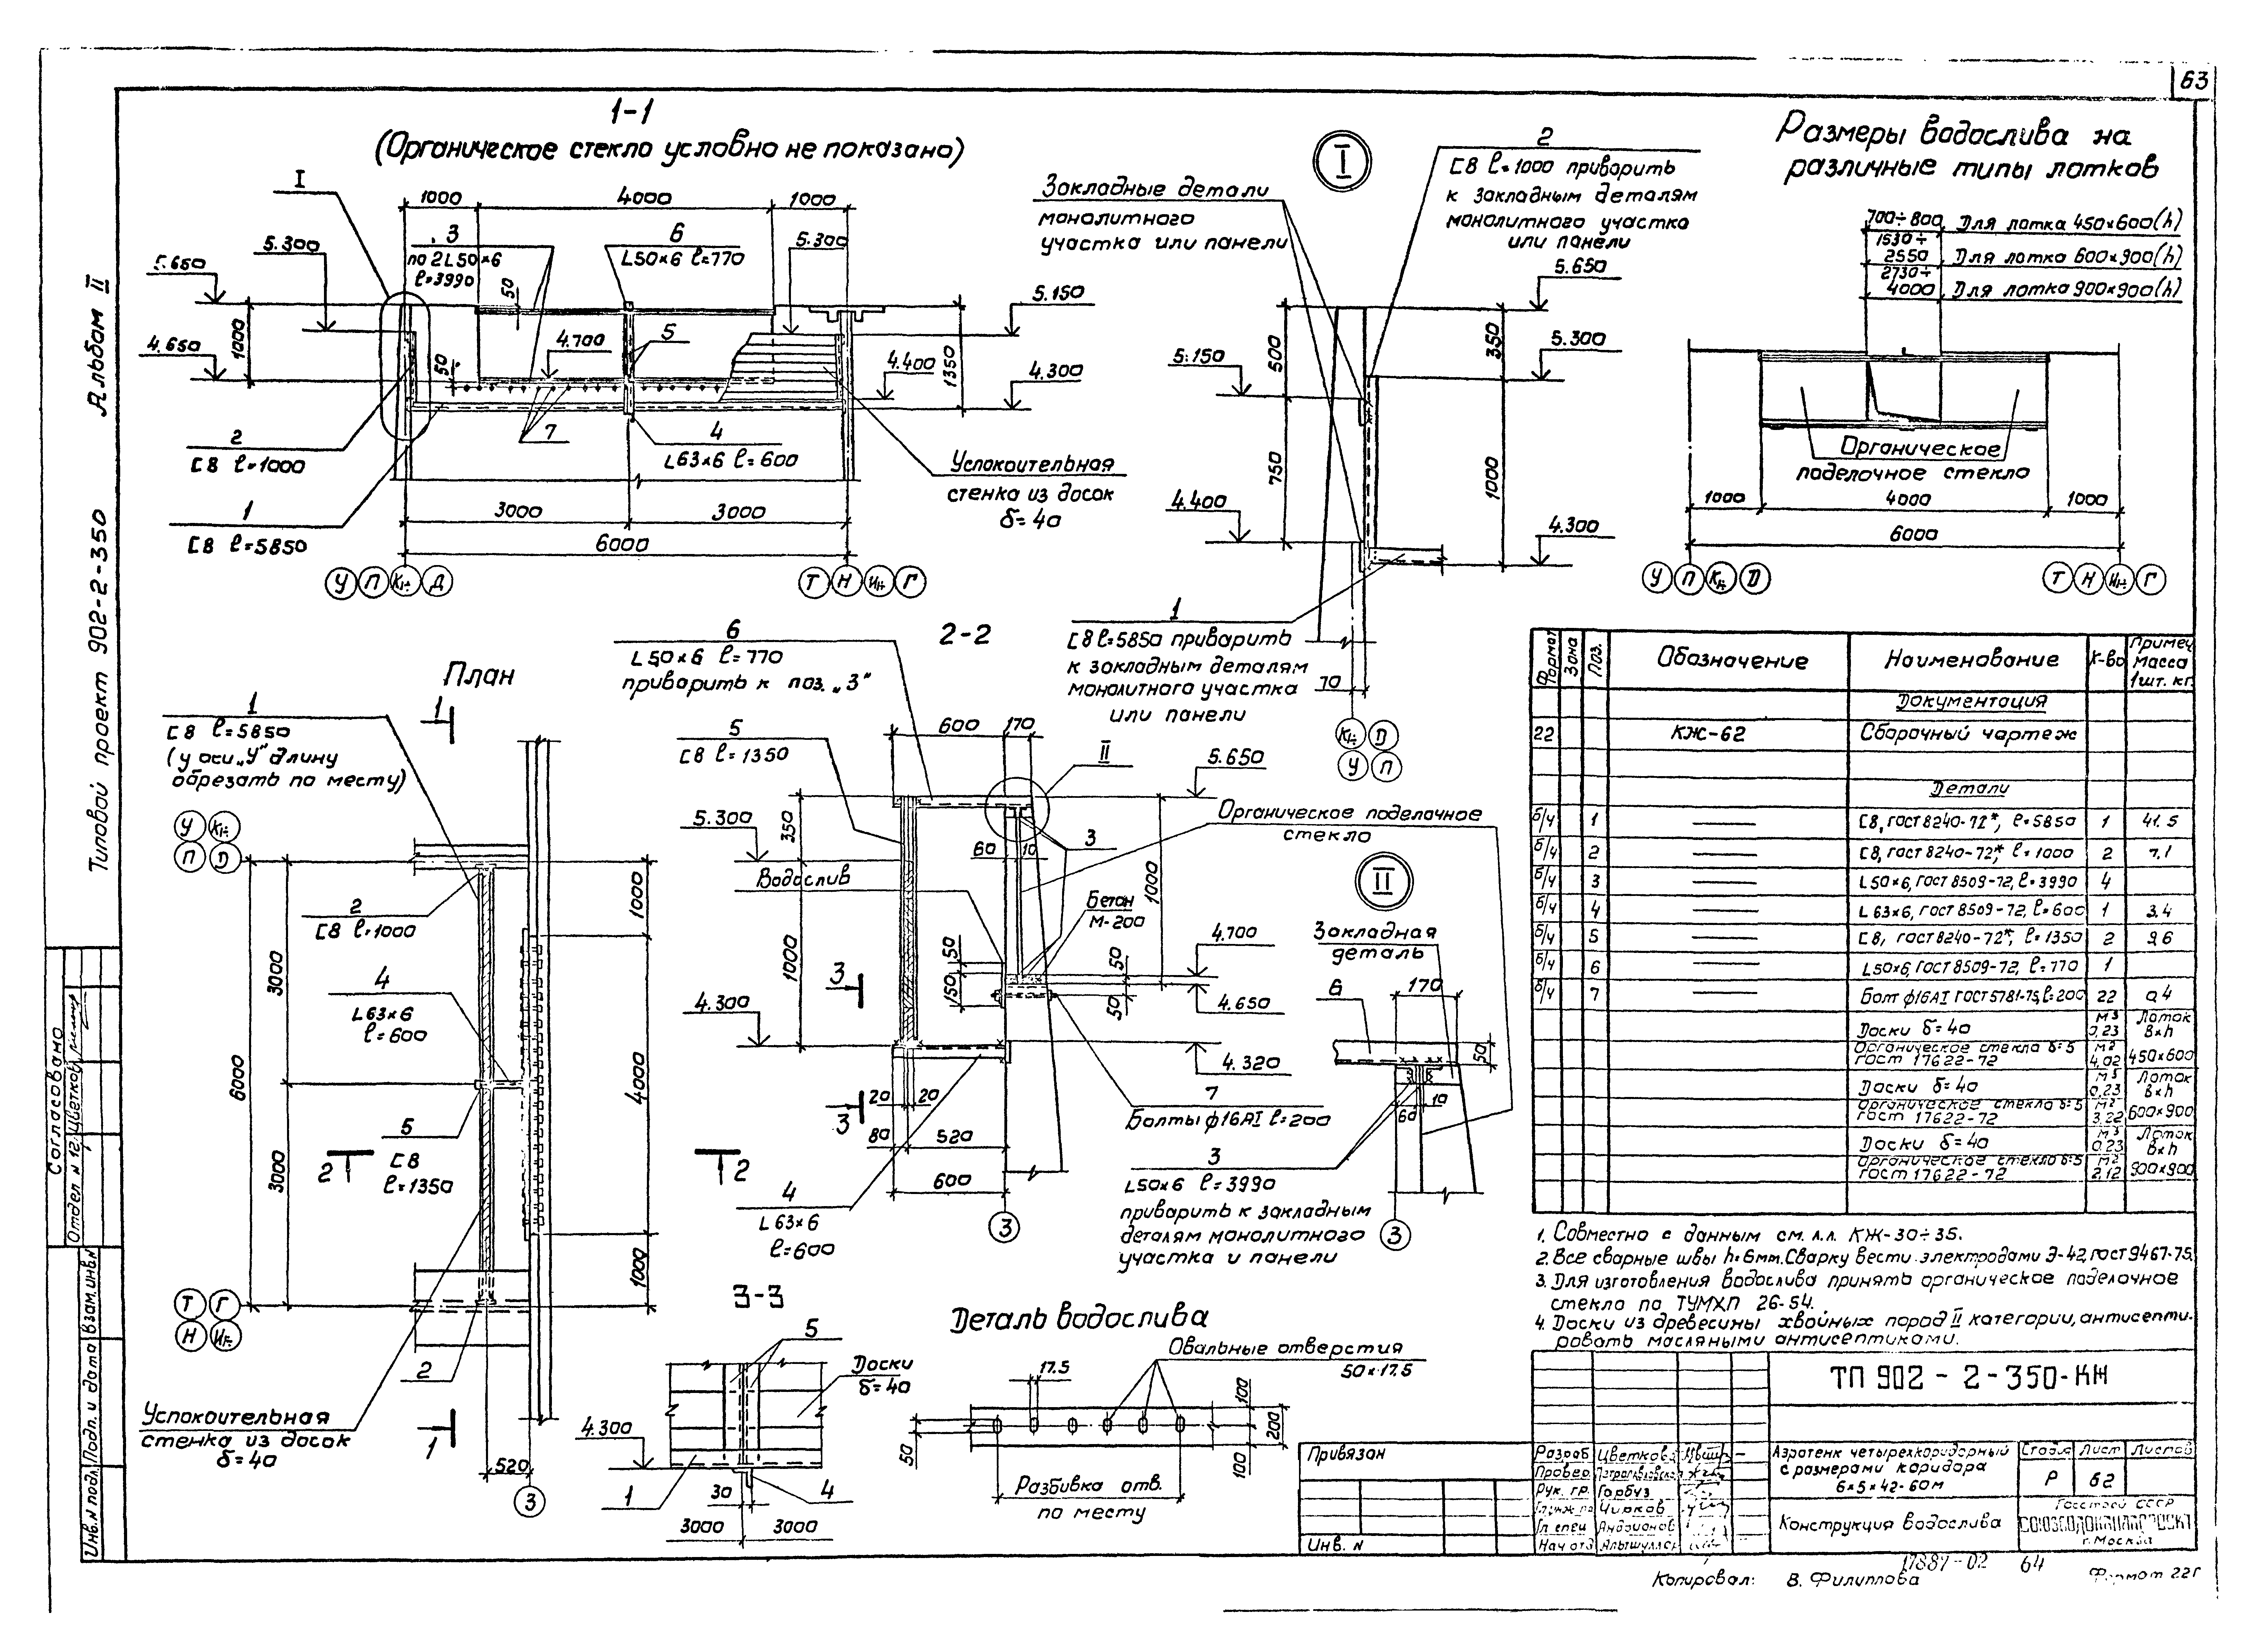 63
Альбом II
Типовой проект 902-2-350
1-1
(Органическое стекло условно не показано)
I
1000
4000
1000
3
по 2L50×6
ℓ=3990
6
L50×6 ℓ=770
5.300
5.300
5.650
5.150
4.650
1000
50
50
4.700
5
4.400
1350
4.300
2
[8 ℓ=1000
7
4
L63×6 ℓ=600
Успокоительная
стенка из досок
δ=40
1
[8 ℓ=5850
3000
3000
6000
У П Д
Т Н Г
I
Закладные детали
монолитного
участка или панели
2
[8 ℓ=1000 приварить
к закладным деталям
монолитного участка
или панели
5.650
5.150
5.300
4.400
4.300
500
750
350
1000
1
[8 ℓ=5850 приварить
к закладным деталям
монолитного участка
или панели
70
Д
У П
Размеры водослива на
различные типы лотков
700÷800 Для лотка 450×600(h)
1530÷
2550 Для лотка 600×900(h)
2730÷
4000 Для лотка 900×900(h)
Органическое
поделочное стекло
1000
4000
1000
6000
У П Д
Т Н Г
План
1
1
[8 ℓ=5850
(у оси „У" длину
обрезать по месту)
У
П Д
2
[8 ℓ=1000
4
L63×6
ℓ=600
5
[8
ℓ=1350
3000
6000
3000
1000
4000
1000
2
2
Т Г
Н
2
Успокоительная
стенка из досок
δ=40
1
520
3
2-2
6
L50×6 ℓ=770
приварить к поз. „3"
5
[8 ℓ=1350
600
170
II
5.650
5.300
350
Органическое поделочное
стекло
3
60
10
Водослив
Бетон
М-200
1000
1000
4.700
50
150
50
50
4.650
3
4.300
4.320
3
20
20
80
520
600
7
Болты ф16АI ℓ=200
4
L63×6
ℓ=600
3
II
Закладная
деталь
6
170
50
60
10
3
L50×6 ℓ=3990
приварить к закладным
деталям монолитного
участка и панели
3
3-3
5
Доски
δ=40
4.300
1
30
4
3000
3000
Деталь водослива
17.5
Овальные отверстия
50×17.5
50
100
200
100
Разбивка отв.
по месту
Формат
Зона
Поз.
Обозначение
Наименование
К-во
Примеч.
Масса
1шт. кг.
Документация
22 КЖ-62 Сборочный чертеж
Детали
б/ч 1 [8, ГОСТ 8240-72*, ℓ=5850 1 41.5
б/ч 2 [8, ГОСТ 8240-72*, ℓ=1000 2 7.1
б/ч 3 L50×6, ГОСТ 8509-72, ℓ=3990 4
б/ч 4 L63×6, ГОСТ 8509-72, ℓ=600 1 3.4
б/ч 5 [8, ГОСТ 8240-72*, ℓ=1350 2 9.6
б/ч 6 L50×6, ГОСТ 8509-72, ℓ=770 1
б/ч 7 Болт ф16АI ГОСТ 5781-75, ℓ=200 22 0.4
Доски δ=40 м³ 0.23 Лоток в×h
Органическое стекло δ=5 ГОСТ 17622-72 м² 4.02 450×600
Доски δ=40 м³ 0.23 Лоток в×h
Органическое стекло δ=5 ГОСТ 17622-72 м² 3.22 600×900
Доски δ=40 м³ 0.23 Лоток в×h
Органическое стекло δ=5 ГОСТ 17622-72 м² 2.12 900×900
1. Совместно с данным см. л.л. КЖ-30÷35.
2. Все сварные швы h=6мм. Сварку вести электродами Э-42, ГОСТ 9467-75.
3. Для изготовления водослива принять органическое поделочное
стекло по ТУМХП 26-54.
4. Доски из древесины хвойных пород II категории, антисепти-
ровать масляными антисептиками.
ТП 902-2-350-КЖ
Привязан
Инв. N
Разраб. Цветков
Провер.
Рук. гр. Горбуз
Чирков
Гл. спец. Андрианов
Нач. отд. Альтшуллер
Аэротенк четырехкоридорный
с размерами коридора
6×5×42-60м
Стадия Лист Листов
Р 62
Конструкция водослива
Госстрой СССР
СОЮЗВОДОКАНАЛПРОЕКТ
г. Москва
17887-02 64
Копировал: В. Филиппова
Формат 22Г
Согласовано
Отдел N 12 Цветков
Взам. инв. N
Подп. и дата
Инв. N подл.